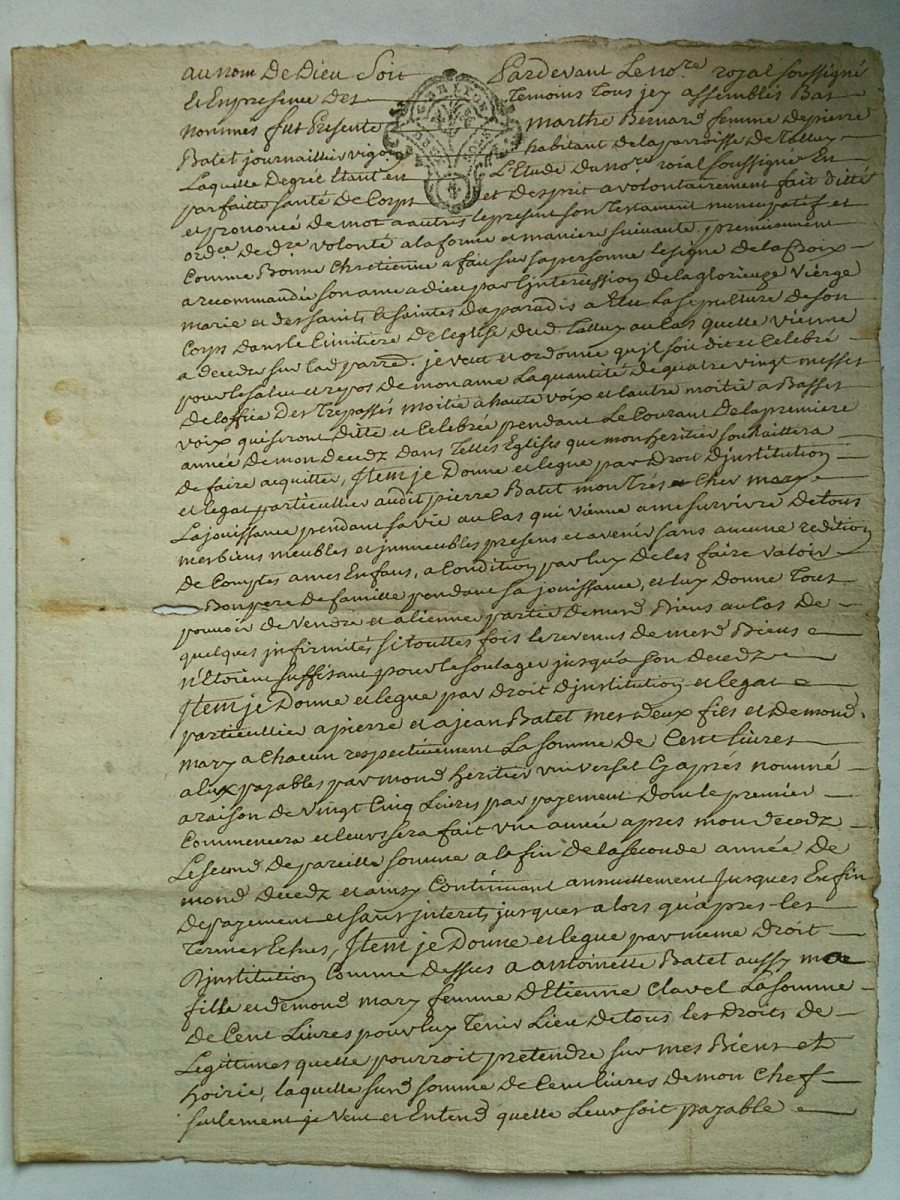 au nom De Dieu Soit Pardevant Le no.re royal soussigné
Et En presence des Temoins Tous jcy assemblés Bas
nommés fut Presente marthe Bernard femme de pierre
Batet journaillier habitant de la parroisse de Talluy
Laquelle Degré Etant en L'Etude du no.re roial soussigné En
parfaitte santé de Corps et d'esprit a volontairement fait ditté
et prononcé de mot a autres le present son Testament nuncupatif et
ord.ce de d.re volonté a la forme et maniere suivante, premierement
Comme Bonne Chretienne a fait sur sa personne le signe de la Croix
a recommandé son ame a dieu par l'jntercession de la glorieuze Viérge
marie et des saints et saintes du paradis a Elu La sepulture de son
Corps dans le Cimitiére de l'eglise dud. Talluy au Cas quelle viénne
a deceder sur lad. parr. je veut et ordonne qu'jl soit dit et Celebré
pour le salut et repos de mon ame La quantité de quatre vingt messes
De l'office Des Trepassés moitié a haute voix et l'autre moitié a Basses
voix qui seront ditte et Celebrée pendant Le Courant De la premiere
année de mon decedz dans Telles Eglises que mon heritier souhaittera
de faire acquitter, Jtem je Donne et legue par Droit Djnstitution
et legat particullier audit pierre Batet mon Trés Cher mary
La jouissance pendant sa vie au Cas qui vienne a me survivre de tous
mes biens meubles et jmmeubles presens et avenir sans aucune redition
de Comptes a mes Enfans, a Condition par luy de les faire valoir
Bon pere de famille pendant sa jouissance, et luy donne Tout
pouvoir de vendre et aliénner partie de mesd. Biens au Cas de
quelques jnfirmités si touttes fois le revenus de mesd. Biens
n'étoient suffisant pour le soulager jusqu'a son decedz
Jtem je Donne et legue par droit Djnstitution et legat
particullier a pierre et a jean Batet mes deux fils et de mond.
mary a Chacun respectivement La somme de Cent livres
a Eux payables par mond. heritier universel Cy aprés nommé
a raison de vingt Cinq Livres par payement Dont le premier
Commencera et leur sera fait une année apres mon decedz
Le second de pareille somme a la fin de la seconde année de
mond. decedz et ainsy Continuant annuellement Jusques En fin
de payement et sans jnterets jusques alors qu'apres les
Termes Echus, Jtem je Donne et legue par meme droit
Djnstitution Comme dessus a antoinette Batet aussy ma
fille et de mond. mary femme d'Etienne Clavel La somme
de Cent Livres pour luy Tenir Lieu de tous les droits de
Legittimes quelle pourroit pretendre sur mes Biens et
hoirie, laquelle susd. somme de Cent livres de mon Chef
seulement je veut et Entend quelle Leur soit payable